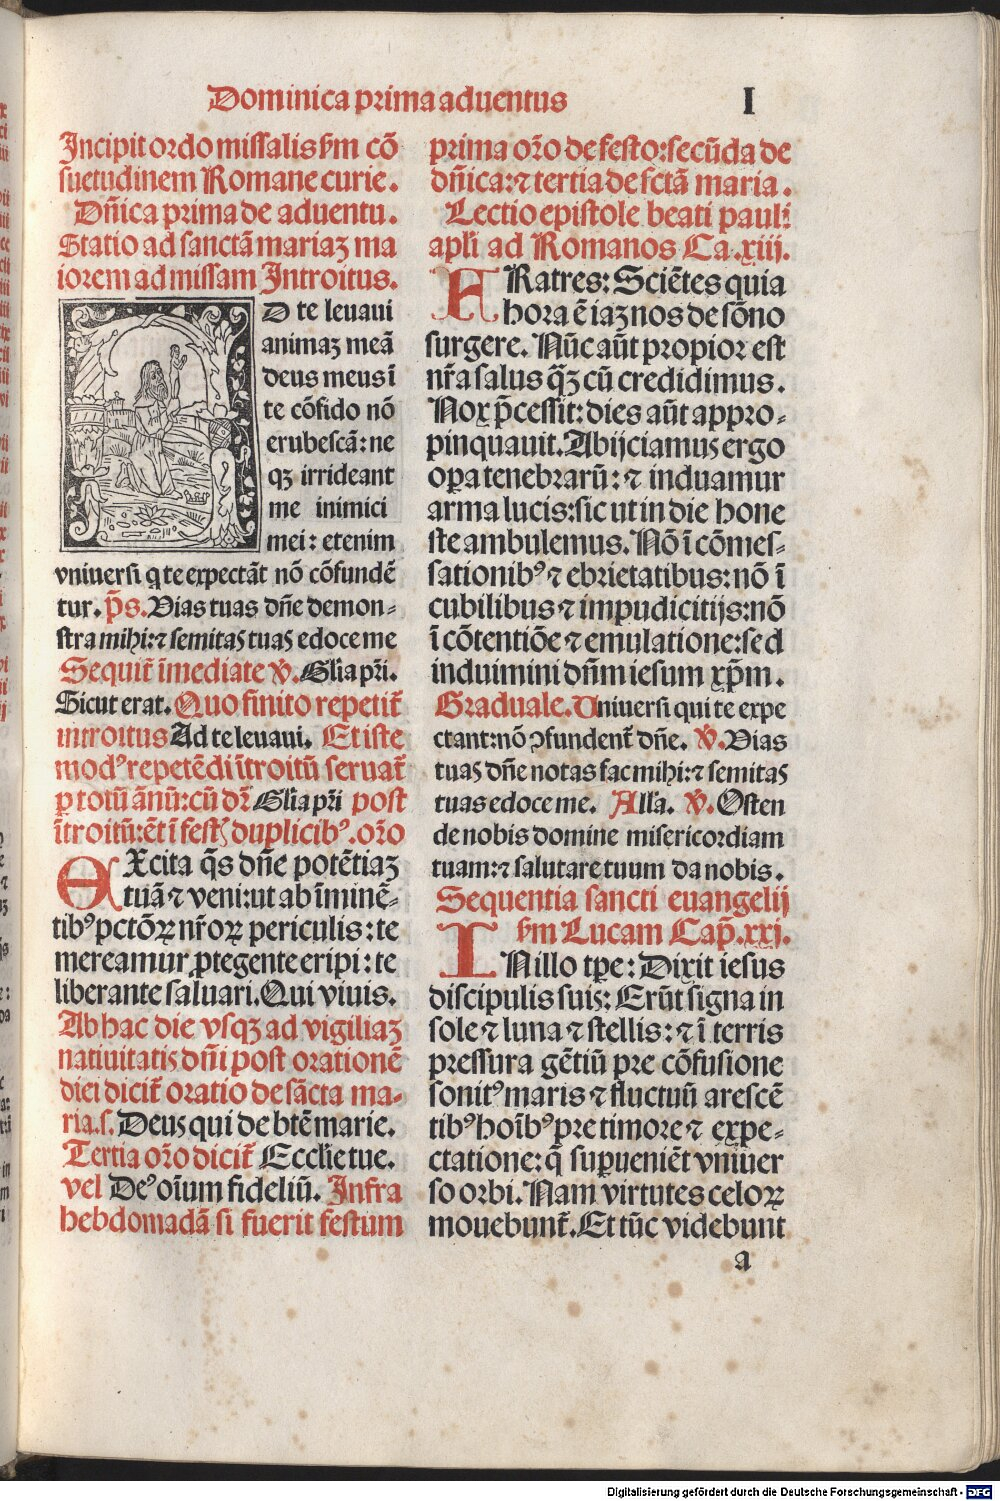 Dominica prima aduentus
I
Incipit ordo missalis ẜm cō
suetudinem Romane curie.
Dn̄ica prima de aduentu.
Statio ad sanctā mariaꝫ ma
iorem ad missam Introitus.
D te leuaui
animaꝫ meā
deus meus ī
te cōfido nō
erubescā: ne
qꝫ irrideant
me inimici
mei: etenim
vniuersi q te expectāt nō cōfundē
tur. p̄s. Vias tuas dn̄e demon-
stra mihi: ⁊ semitas tuas edoce me
Sequit̄ īmediate v̄. Gl̄ia pr̄i.
Sicut erat. Quo finito repetit̄
introitus Ad te leuaui. Et iste
modꝰ repetēdi ītroitū seruat̄
ꝑ totū ānū: cū dr̄ Gl̄ia pr̄i post
ītroitū: ēt ī fest duplicibꝰ. or̄o
EXcita q̄s dn̄e potētiaꝫ
tuā ⁊ veni: ut ab īminē-
tibꝰ pctōꝝ nr̄oꝝ periculis: te
mereamur ꝓtegente eripi: te
liberante saluari. Qui viuis.
Ab hac die vsqꝫ ad vigiliaꝫ
natiuitatis dn̄i post orationē
diei dicit̄ oratio de sācta ma-
ria. s. Deus qui de btē marie.
Tertia or̄o dicit̄ Eccl̄ie tue.
vel Deꝰ oīum fideliū. Infra
hebdomadā si fuerit festum
prima or̄o de festo: secūda de
dn̄ica: ⁊ tertia de sctā maria.
Lectio epistole beati pauli
apl̄i ad Romanos Ca. xiij.
FRatres: Sciētes quia
hora ē iaꝫ nos de sōno
surgere. Nūc aūt propior est
nr̄a salus qꝫ̄ cū credidimus.
Nox p̄cessit: dies aūt appro-
pinquauit. Abijciamus ergo
oꝑa tenebrarū: ⁊ induamur
arma lucis: sic ut in die hone
ste ambulemus. Nō ī cōmes-
sationibꝰ ⁊ ebrietatibus: nō ī
cubilibus ⁊ impudicitijs: nō
ī cōtentiōe ⁊ emulatione: sed
induimini dn̄m iesum xp̄m.
Graduale. Uniuersi qui te expe
ctant: nō ꝯfundent̄ dn̄e. v̄. Vias
tuas dn̄e notas fac mihi: ⁊ semitas
tuas edoce me. Alla. v̄. Osten
de nobis domine misericordiam
tuam: ⁊ salutare tuum da nobis.
Sequentia sancti euangelij
ẜm Lucam Cap̄. xxi.
INillo tꝑe: Dixit iesus
discipulis suis: Erūt signa in
sole ⁊ luna ⁊ stellis: ⁊ ī terris
pressura gētiū pre cōfusione
sonitꝰ maris ⁊ fluctuū arescē
tibꝰ hoībꝰ pre timore ⁊ expe-
ctatione: q̄ suꝑueniēt vniuer
so orbi. Nam virtutes celoꝝ
mouebunt̄. Et tūc videbunt
a
Digitalisierung gefördert durch die Deutsche Forschungsgemeinschaft - DFG